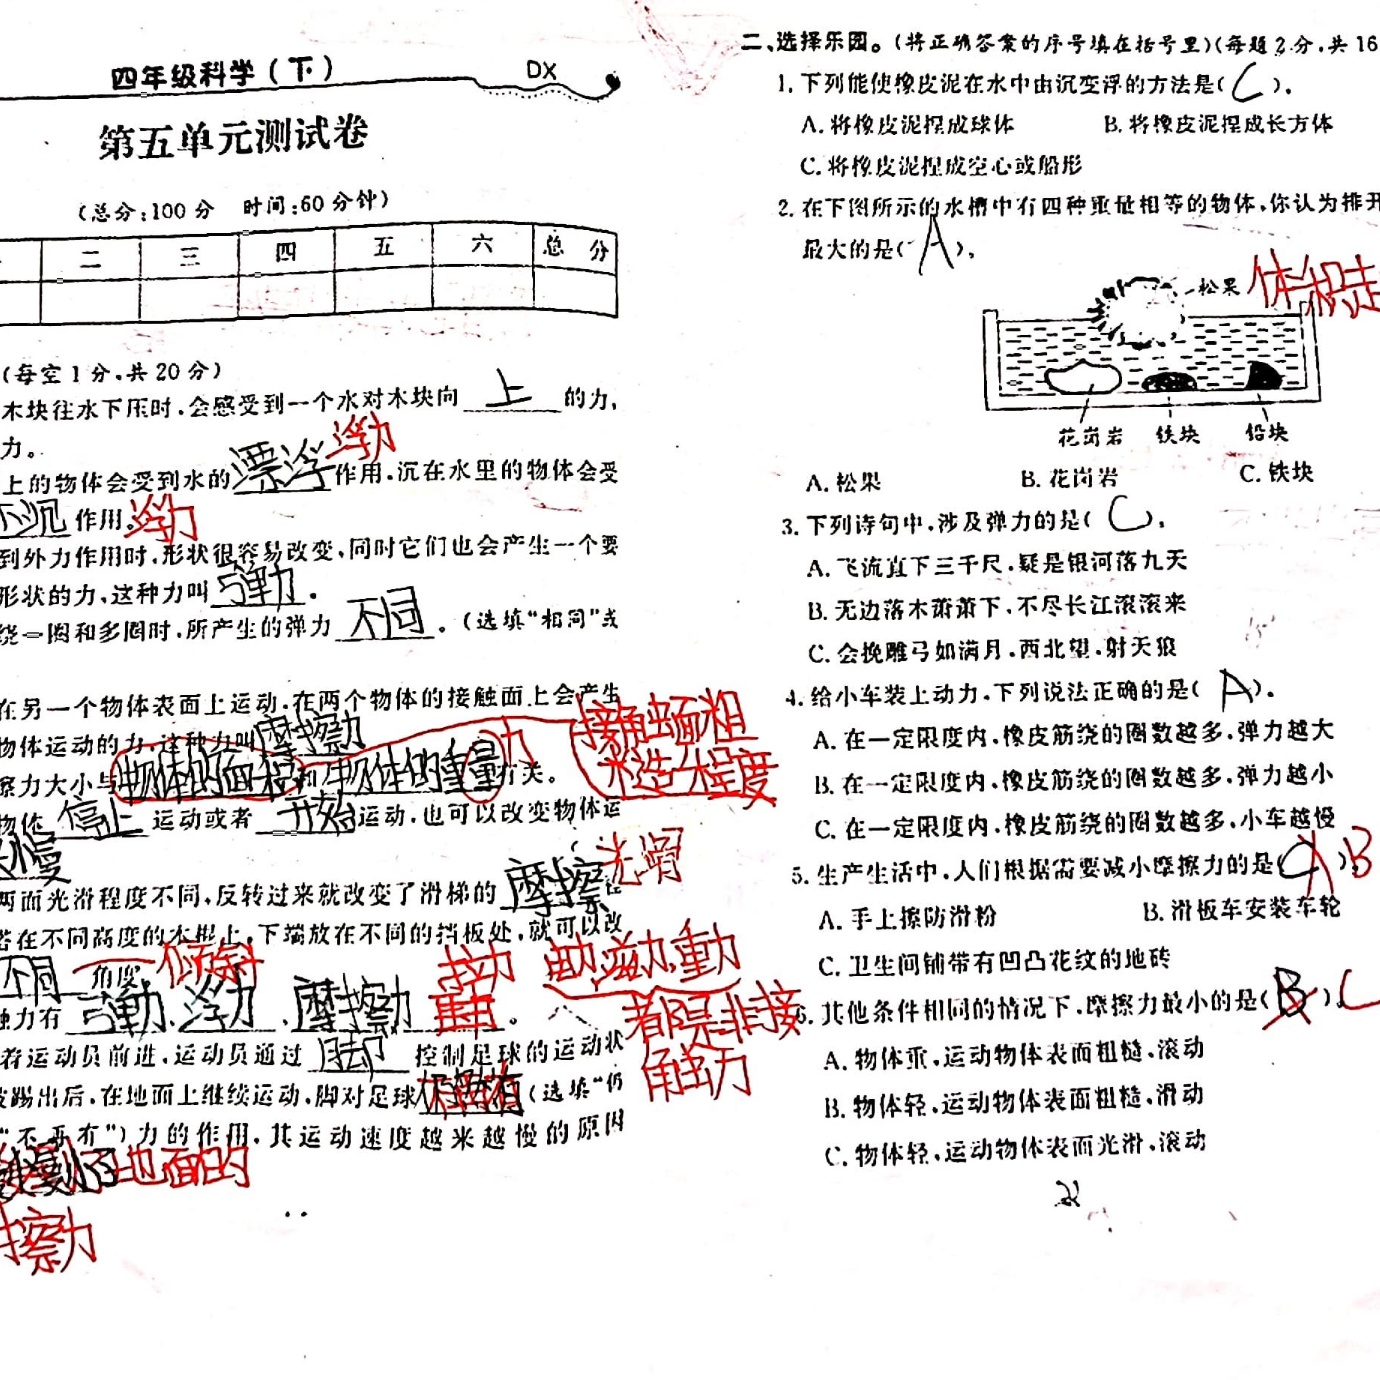 四年级科学(下)
DX
第五单元测试卷
(总分:100分 时间:60分钟)
二 三 四 五 六 总分
(每空1分,共20分)
木块往水下压时,会感受到一个水对木块向 上 的力,
力。
上的物体会受到水的 漂浮 浮力 作用,沉在水里的物体会受
不沉 作用。浮力
到外力作用时,形状很容易改变,同时它们也会产生一个要
形状的力,这种力叫 弹力 。
绕一圈和多圈时,所产生的弹力 不同 。(选填“相同”或
在另一个物体表面上运动,在两个物体的接触面上会产生
物体运动的力,这种力叫 摩擦力
察力大小与 物体的面积 和 物体的重量 力 有关。
接触面粗糙程度
物体 停止 运动或者 开始 运动,也可以改变物体运
慢
两面光滑程度不同,反转过来就改变了滑梯的 摩擦 光滑
搭在不同高度的木棍上,下端放在不同的挡板处,就可以改
不同 角度 倾斜
触力有 弹力、浮力、摩擦力
电力,磁力,重力
都是非接触力
着运动员前进,运动员通过 脚 控制足球的运动状
被踢出后,在地面上继续运动,脚对足球 不再有 (选填“仍
“不再有”)力的作用,其运动速度越来越慢的原因
地面的
擦力
二、选择乐园。(将正确答案的序号填在括号里)(每题2分,共16
1. 下列能使橡皮泥在水中由沉变浮的方法是( C )。
A. 将橡皮泥捏成球体 B. 将橡皮泥捏成长方体
C. 将橡皮泥捏成空心或船形
2. 在下图所示的水槽中有四种重量相等的物体,你认为排开
最大的是( A )。
松果 体积
花岗岩 铁块 铅块
A. 松果 B. 花岗岩 C. 铁块
3. 下列诗句中,涉及弹力的是( C )。
A. 飞流直下三千尺,疑是银河落九天
B. 无边落木萧萧下,不尽长江滚滚来
C. 会挽雕弓如满月,西北望,射天狼
4. 给小车装上动力,下列说法正确的是( A )。
A. 在一定限度内,橡皮筋绕的圈数越多,弹力越大
B. 在一定限度内,橡皮筋绕的圈数越多,弹力越小
C. 在一定限度内,橡皮筋绕的圈数越多,小车越慢
5. 生产生活中,人们根据需要减小摩擦力的是( C ) B
A. 手上擦防滑粉 B. 滑板车安装车轮
C. 卫生间铺带有凹凸花纹的地砖
6. 其他条件相同的情况下,摩擦力最小的是( B )。C
A. 物体重,运动物体表面粗糙,滚动
B. 物体轻,运动物体表面粗糙,滑动
C. 物体轻,运动物体表面光滑,滚动